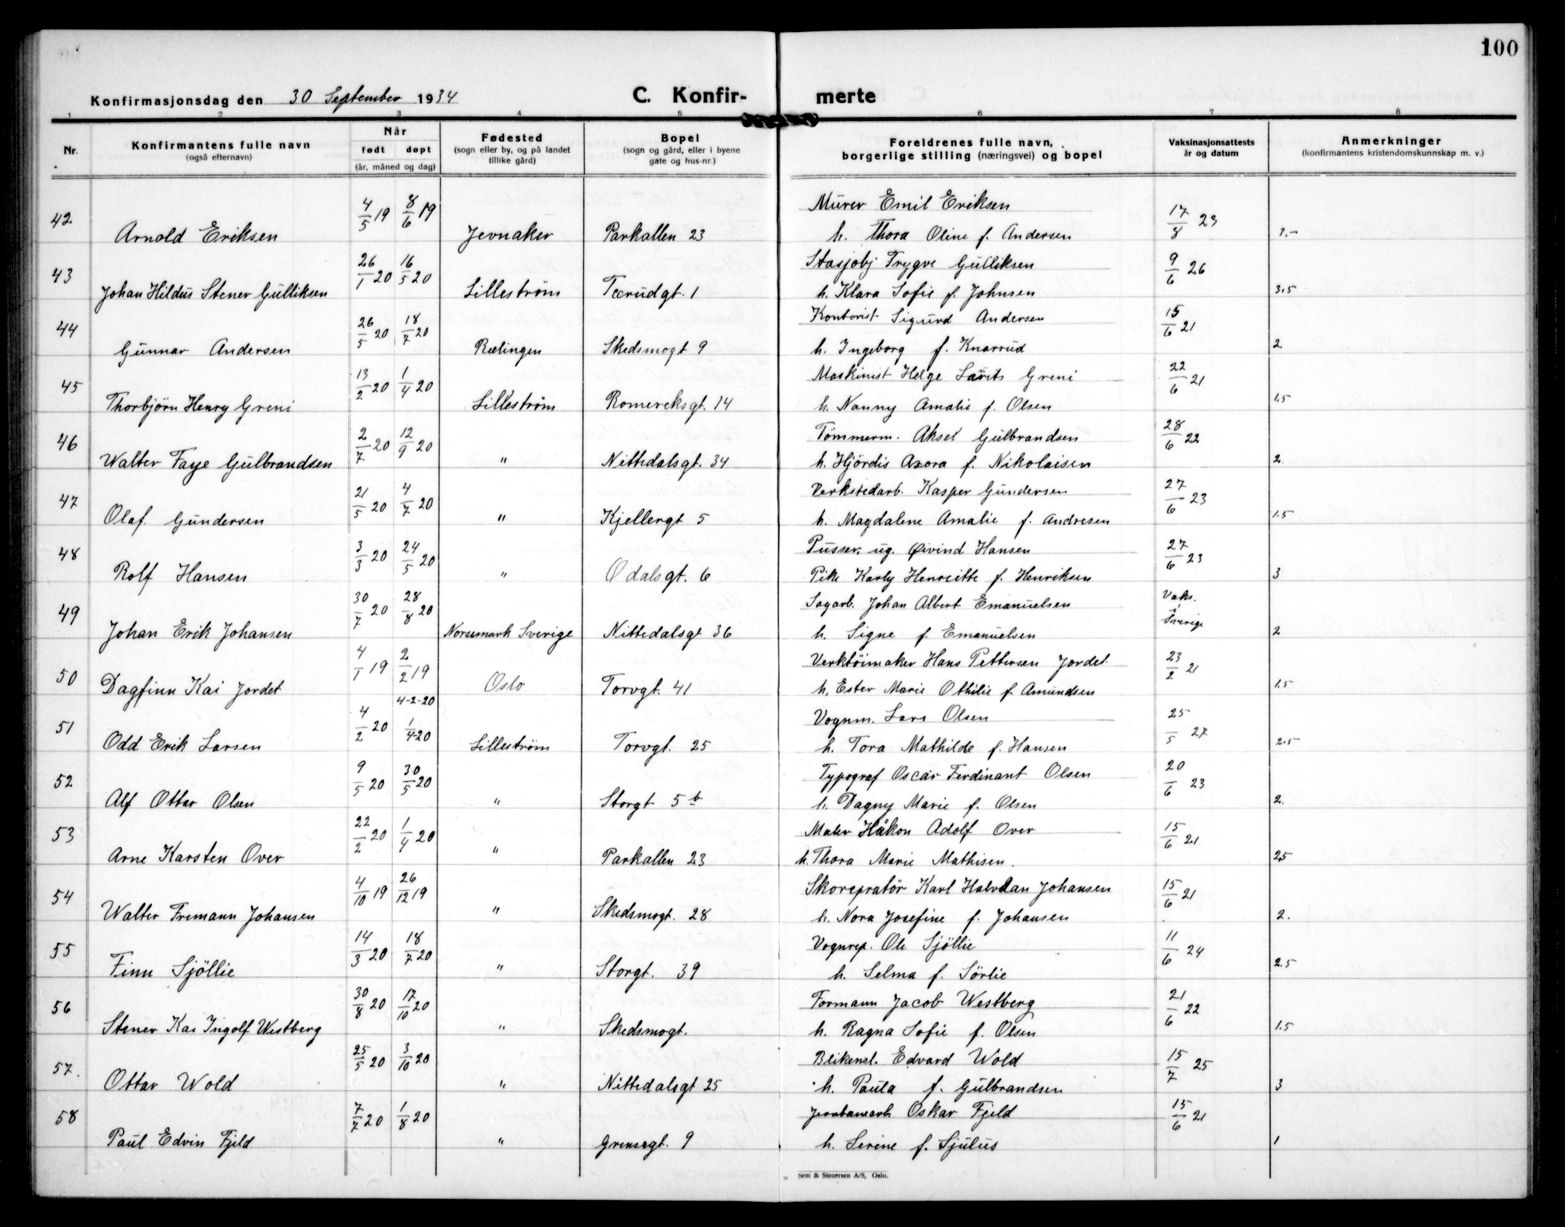 100
Konfirmasjonsdag den 30 September 1934 C. Konfir- merte
1 2 3 4 5 6 7 8
Nr. Konfirmantens fulle navn (også efternavn) Når født døpt (år, måned og dag) Fødested (sogn eller by, og på landet tillike gård) Bopel (sogn og gård, eller i byene gate og hus-nr.) Foreldrenes fulle navn, borgerlige stilling (næringsvei) og bopel Vaksinasjonsattests år og datum Anmerkninger (konfirmantens kristendomskunnskap m. v.)
Murer Emil Eriksen
42 Arnold Eriksen 4/5 19 8/6 19 Jevnaker Parkallen 23 h. Thora Oline f. Andersen 17/8 23
Stasjobj Trygve Gulliksen
43 Johan Hildus Stener Gulliksen 26/1 20 16/5 20 Lilleström Tærudgt. 1 h. Klara Sofie f. Johnsen 9/6 26 3.5
Kontorist Sigurd Andersen
44 Gunnar Andersen 26/5 20 18/7 20 Rælingen Skedsmogt 9 h. Ingeborg f. Knarrud 15/6 21 2.
Maskinist Helge Larits Greni
45 Thorbjörn Henry Greni 13/2 20 1/4 20 Lilleström Romereksgt. 14 h. Nanny Amalie f. Olsen 22/6 21 1.5
Tömmerm. Aksel Gulbrandsen
46 Walter Faye Gulbrandsen 2/7 20 12/9 20 " Nittedalsgt. 34 h. Hjördis Azora f. Nikolaisen 28/6 22 2.
Verkstedarb. Kasper Gundersen
47 Olaf Gundersen 21/5 20 4/7 20 " Kjellergt 5 h. Magdalene Amalie f. Andresen 27/6 23 1.5
Pusser, ug. Øivind Hansen
48 Rolf Hansen 3/3 20 24/5 20 " Odalsgt. 6 Pike Karly Henriette f. Henriksen 27/6 23 3
Sagarb. Johan Albert Emanuelsen
49 Johan Erik Johansen 30/7 20 28/8 20 Norsemark Sverige Nittedalsgt 36 h. Signe f. Emanuelsen Vaks. i Sverige 2
Verktöimaker Hans Pettersen Jordet
50 Dagfinn Kai Jordet 4/1 19 2/2 19 Oslo Torvgt. 41 h. Ester Marie Othilie f. Amundsen 23/2 21 1.5
4-2-20
Vognm. Lars Olsen
51 Odd Erik Larsen 4/2 20 1/4 20 Lilleström Torvgt. 25 h. Tora Mathilde f. Hansen 25/5 27 2.5
Typograf Oscar Ferdinant Olsen
52 Alf Ottar Olsen 9/5 20 30/5 20 " Storgt 5 b h. Dagny Marie f. Olsen 20/6 23 2.
Maler Håkon Adolf Over
53 Arne Karsten Over 22/2 20 1/4 20 " Parkallen 23 h. Thora Marie Mathisen. 15/6 21 2.5
Skorepratør Karl Halvdan Johansen
54 Walter Fremann Johansen 4/10 19 26/12 19 " Skedsmogt. 28 h. Nora Josefine f. Johansen 15/6 21 2.
Vognrep. Ole Sjöllie
55 Finn Sjöllie 14/3 20 18/7 20 " Storgt. 39 h. Selma f. Sörlie 11/6 24 2.5
Formann Jacob Westberg
56 Stener Kai Ingolf Westberg 30/8 20 17/10 20 " Skedsmogt. h. Ragna Sofie f. Olsen 21/6 22 1.5
Blikensl. Edvard Wold
57. Ottar Wold 25/5 20 3/10 20 " Nittedalsgt 25 h. Paula f. Gulbrandsen 15/7 25 3
Oskar Fjeld
58 Paul Edvin Fjeld 7/7 20 1/8 20 " Grensegt. 9 h. Serine f. Sjulus 15/6 21 1
Sem & Stenersen A/S, Oslo.